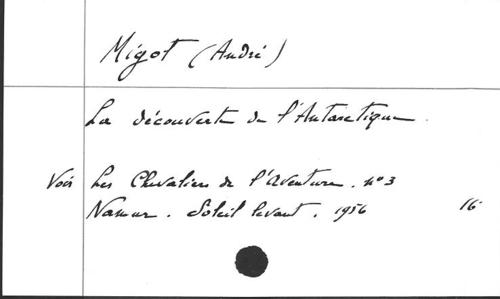 Migot (André)
La découverte de l'Antarctique.
Voir Les Chevaliers de l'Aventure. n° 3
Namur. Soleil levant. 1956 16